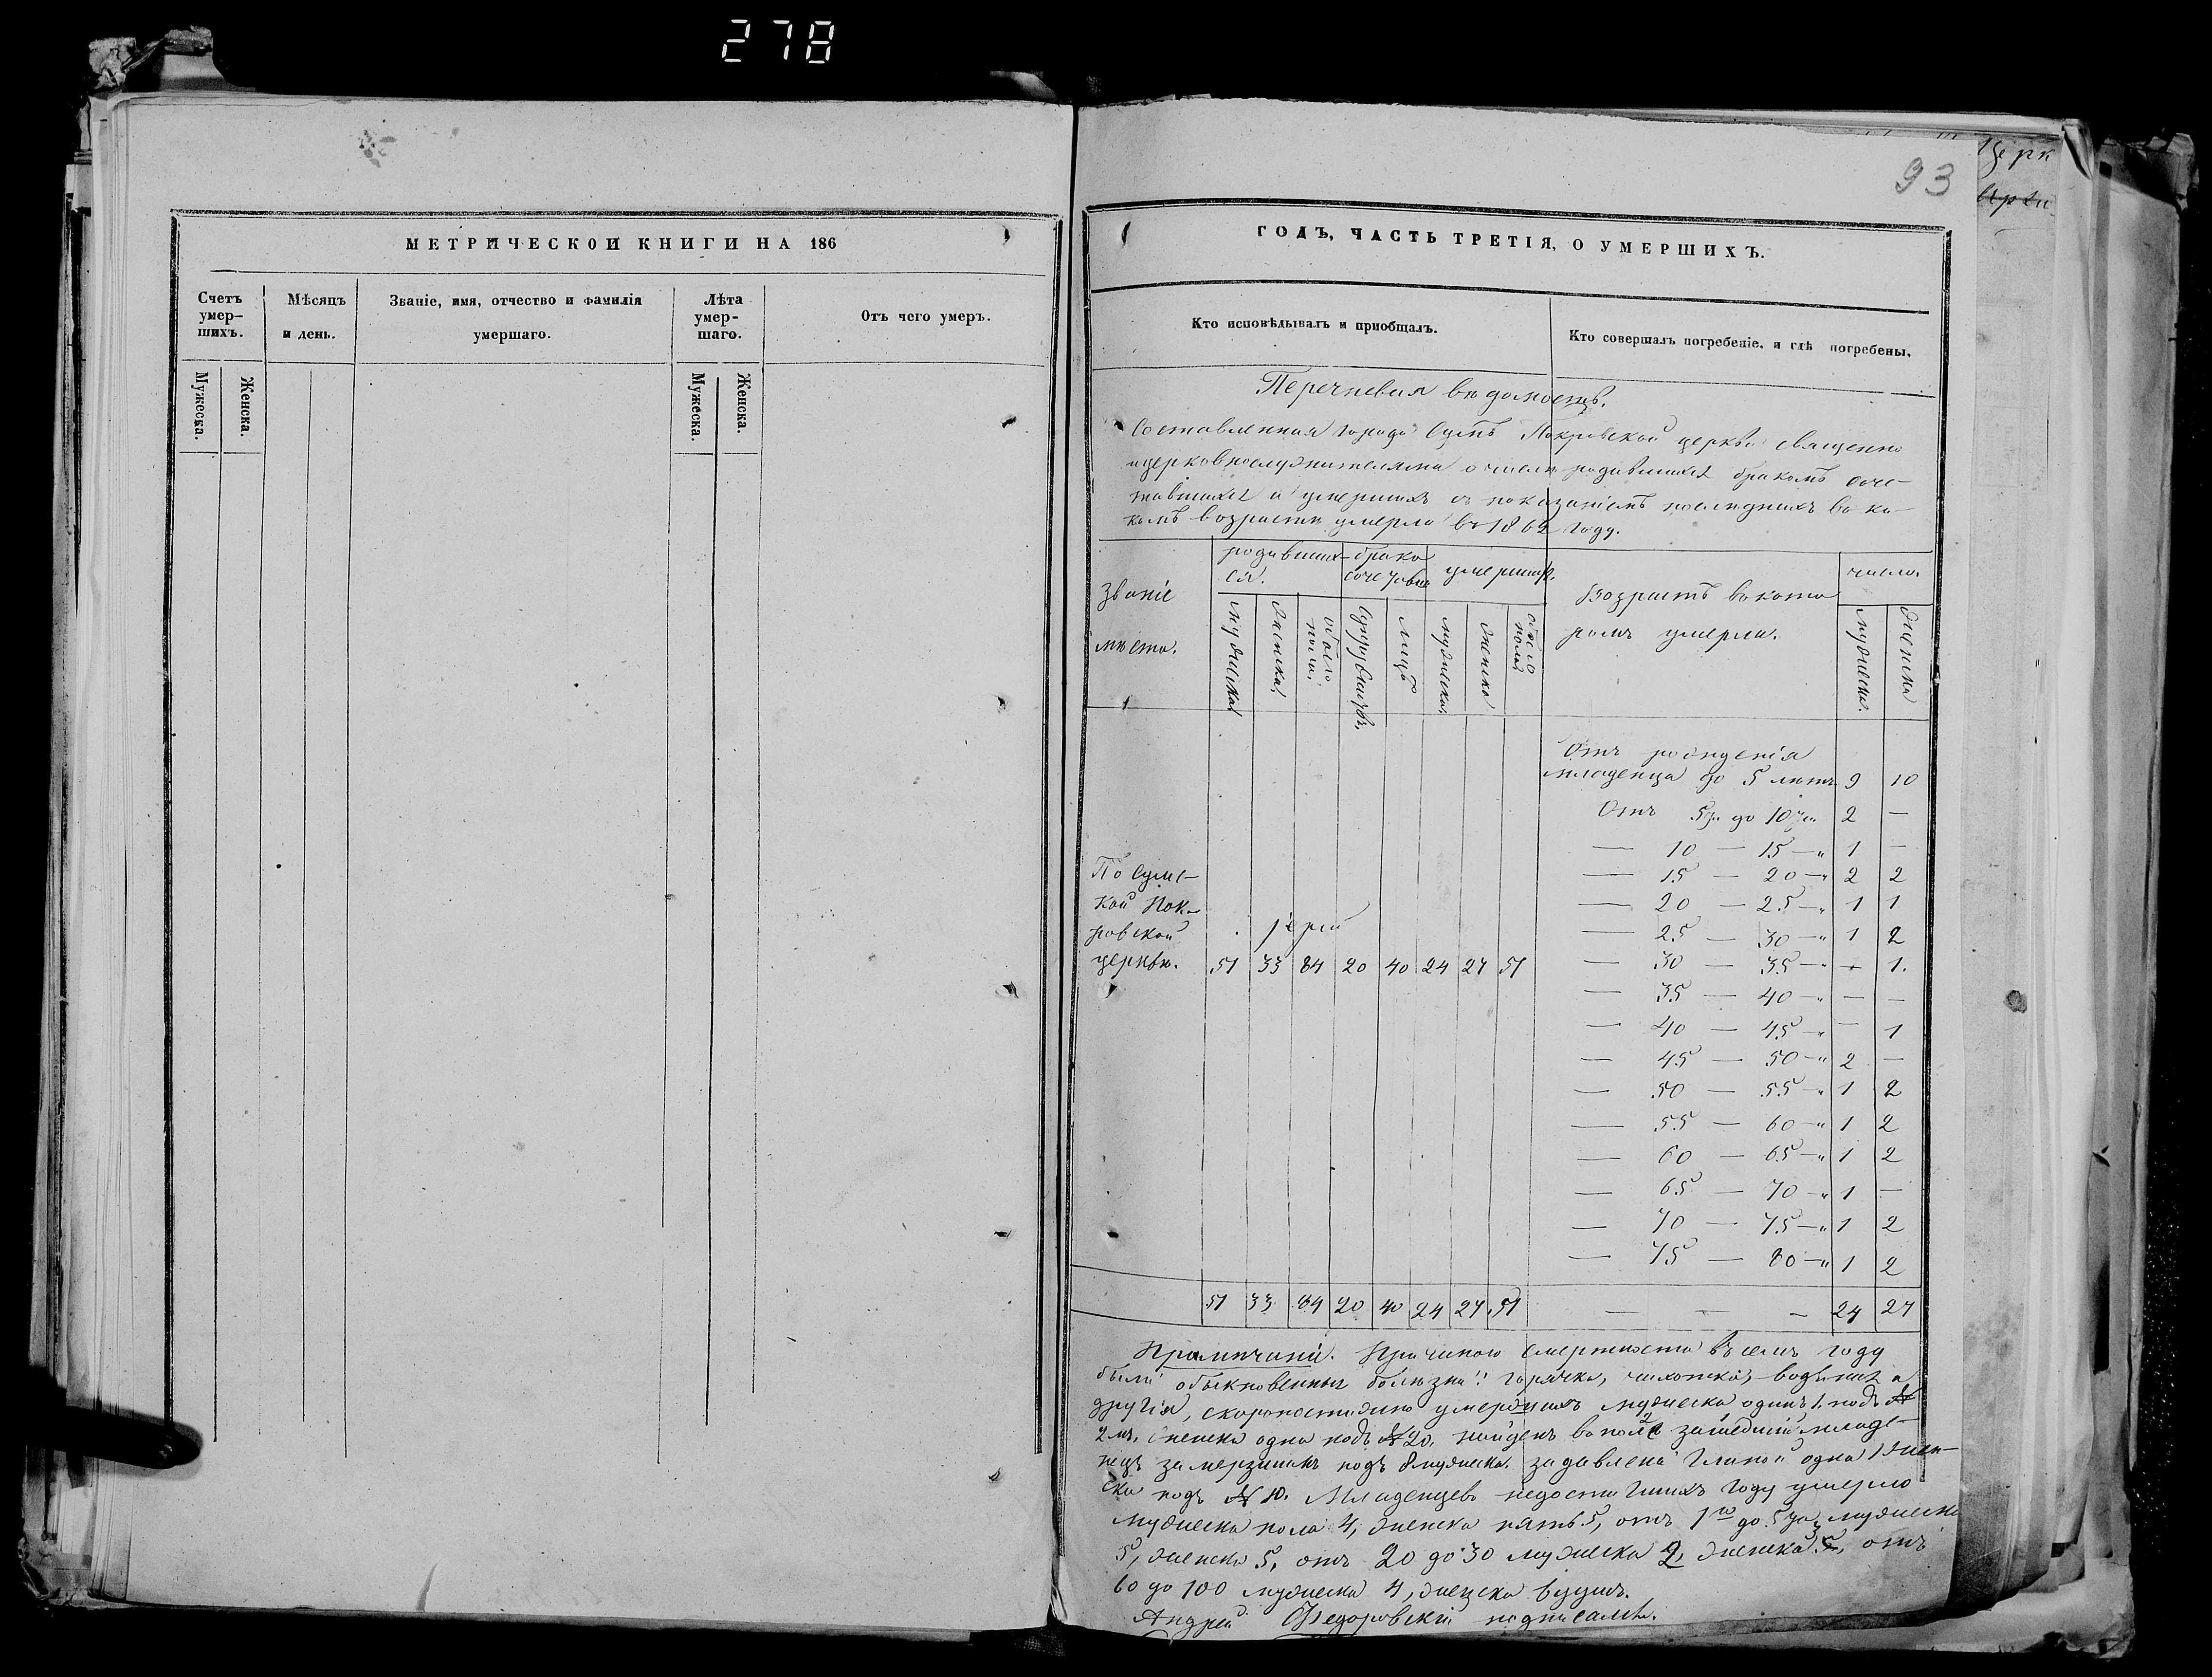 278
93
МЕТРИЧЕСКОЙ КНИГИ НА 186
Счетъ умер-
шихъ.
Мѣсяцъ
и день.
Званіе, имя, отчество и фамилія
умершаго.
Лѣта
умер-
шаго.
Отъ чего умеръ.
Мужеска.
Женска.
Мужеска.
Женска.
ГОДЪ, ЧАСТЬ ТРЕТІЯ, О УМЕРШИХЪ.
Кто исповѣдывалъ и приобщалъ.
Кто совершалъ погребеніе, и гдѣ погребены.
Перечневая вѣдомость.
Составленная города Сумъ Покровской церкви священно
и церковнослужителями о числѣ родившихся бракомъ соче-
тавшихся и умершихъ съ показаніемъ последнихъ въ ка-
комъ возрастѣ умерло въ 1862 году.
Званіе
мѣста.
родивших-
ся.
брако
сочетавш
умерших.
Возрастъ въ кото
ромъ умерли.
число.
мужеска
женска
обоего
пола
супружествъ
лицъ
мужеска
женска
обоего
пола
мужеска.
женска
Отъ рожденія
младенца до 5 лѣтъ 9 10
Отъ 5 до 10 2 —
— 10 — 15 — " 1 —
— 15 — 20 — " 2 2
— 20 — 25 — " 1 1
— 25 — 30 — " 1 2
— 30 — 35 — " — 1.
— 35 — 40 — " — —
— 40 — 45 — " — 1
— 45 — 50 — " 2 —
— 50 — 55 — " 1 2
— 55 — 60 — " 1 2
— 60 — 65 — " 1 2
— 65 — 70 — " 1 —
— 70 — 75 — " 1 2
— 75 — 80 — " 1 2
По Сумс-
кой Пок-
ровской
церкви. 51 33 84 20 40 24 27 51
іерей
51 33 84 20 40 24 27 51 — — — 24 27
Примѣчаніе. Причиною смертности въ семъ году
были обыкновенныя болѣзни: горячка, чахотка, водяная и
другія, скоропостижно умершихъ мужеска одинъ 1. подъ №
2 м. женска одна подъ № 20. найденъ въ полѣ младе-
нецъ замерзшимъ подъ 8 мужеска. задавлена глиной одна 1 жен-
ска подъ № 10. Младенцевъ недостигшихъ году умерло
мужеска пола 4, женска пять 5, отъ 1го до 5 мужеска
5, женска 5, отъ 20 до 30 мужеска 2, женска 3, отъ
60 до 100 мужеска 4, женска
Андрей Федоровскій подписалъ.
Церк